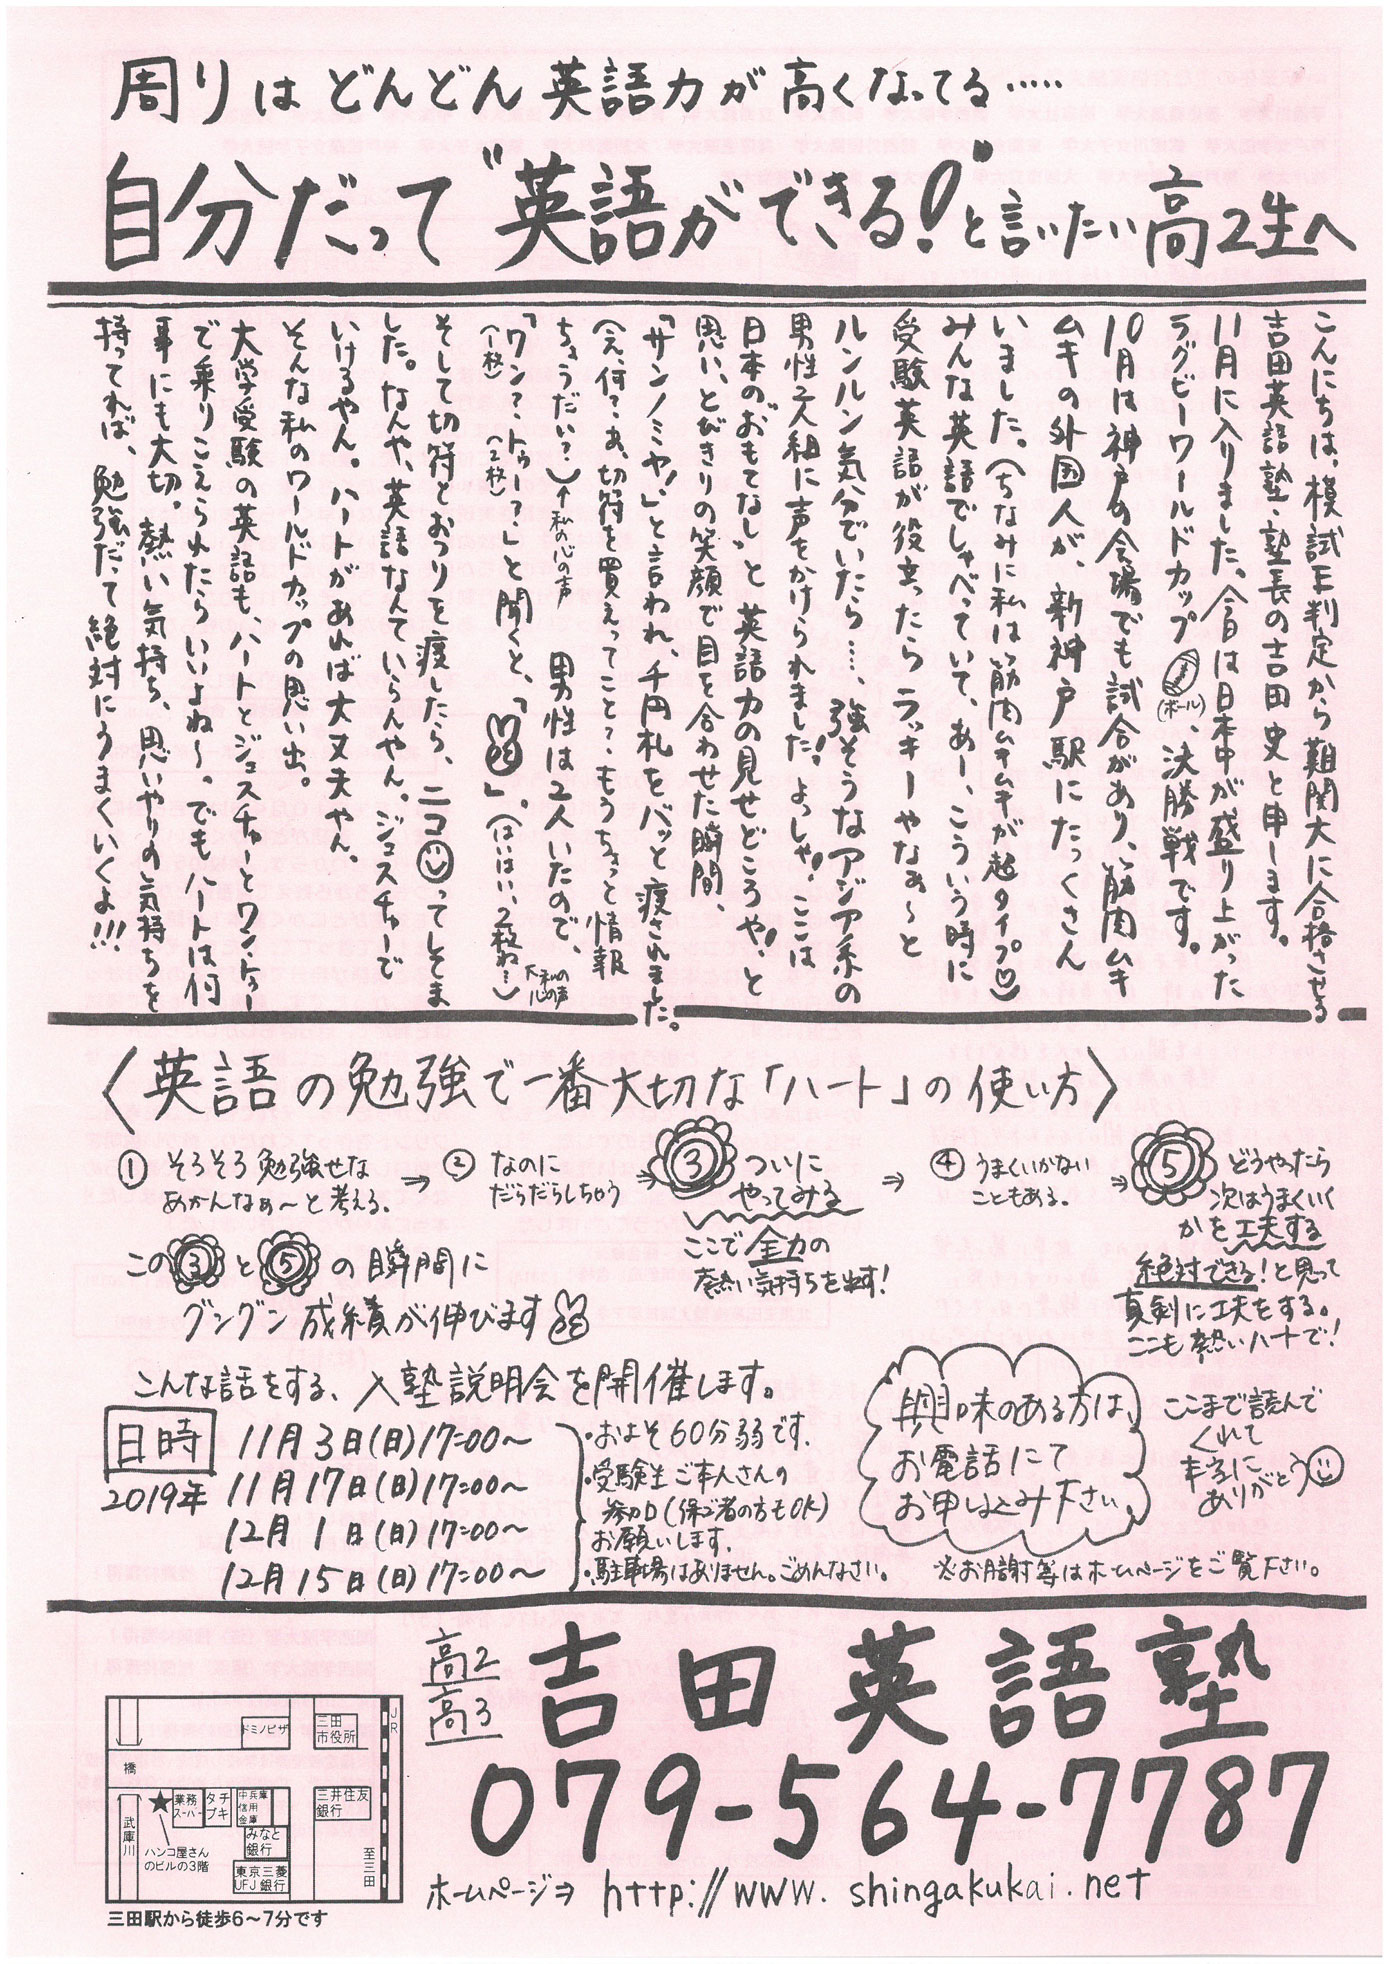 周りはどんどん英語力が高くなってる……
自分だって"英語ができる!"と言いたい高2生へ
こんにちは、模試E判定から難関大に合格させる
吉田英語塾・塾長の吉田 史と申します。
11月に入りました。今日は日本中が盛り上がった
ラグビーワールドカップ(ボール)、決勝戦です。
10月は神戸の会場でも試合があり、筋肉ムキ
ムキの外国人が、新神戸駅にたっくさん
いました。(ちなみに私は筋肉ムキムキが超タイプ♡)
みんな英語でしゃべっていて、あー、こういう時に
受験英語が役立ったらラッキーやなぁ〜と
ルンルン気分でいたら……、強そうなアジア系の
男性2人組に声をかけられました!よっしゃ!ここは
日本の"おもてなし"と英語力の見せどころや!と
思い、とびきりの笑顔で目を合わせた瞬間、
「サンノミヤ!」と言われ、千円札をバッと渡されました。
(え、何?あ、切符を買えってこと?もうちょっと情報
ちょうだい?)↑私の心の声 男性は2人いたので、
「ワン?トゥー?」と聞くと、「✌」。(はいはい、2枚ね…)
(1枚) (2枚) ↑私の心の声
そして切符とおつりを渡したら、ニコ☺ってしてま
した。なんや、英語なんていらんやん。ジェスチャーで
いけるやん。ハートがあれば大丈夫やん。
そんな私のワールドカップの思い出。
大学受験の英語も、ハートとジェスチャーとワン・トゥー
で乗りこえられたらいいよね〜。でもハートは何
事にも大切。熱い気持ち、思いやりの気持ちを
持ってれば、勉強だって絶対にうまくいくよ!!!
〈英語の勉強で一番大切な「ハート」の使い方〉
① そろそろ勉強せな
あかんなぁ〜と考える。
⇒ ② なのに
だらだらしちゃう
⇒ ③ ついに
やってみる
ここで全力の
熱い気持ちを出す!
⇒ ④ うまくいかない
こともある。
⇒ ⑤ どうやったら
次はうまくいく
かを工夫する
絶対できる!と思って
真剣に工夫をする。
ここも熱いハートで!
この③と⑤の瞬間に
グングン成績が伸びます
こんな話をする、入塾説明会を開催します。
日時
2019年
11月3日(日)17:00〜
11月17日(日)17:00〜
12月1日(日)17:00〜
12月15日(日)17:00〜
・およそ60分弱です。
・受験生ご本人さんの
参加(保護者の方もOK)
お願いします。
・駐車場はありません。ごめんなさい。
興味のある方は、
お電話にて
お申し込み下さい。
ここまで読んで
くれて
本当に
ありがとう☺
※お月謝等はホームページをご覧下さい。
高2
高3
吉田英語塾
079-564-7787
ホームページ⇒ http://www.shingakukai.net
ドミノピザ
三田
市役所
JR
橋
武庫川
★
業務
スーパー
タチ
ブキ
中兵庫
信用
金庫
三井住友
銀行
みなと
銀行
東京三菱
UFJ銀行
至三田
ハンコ屋さん
のビルの3階
三田駅から徒歩6〜7分です